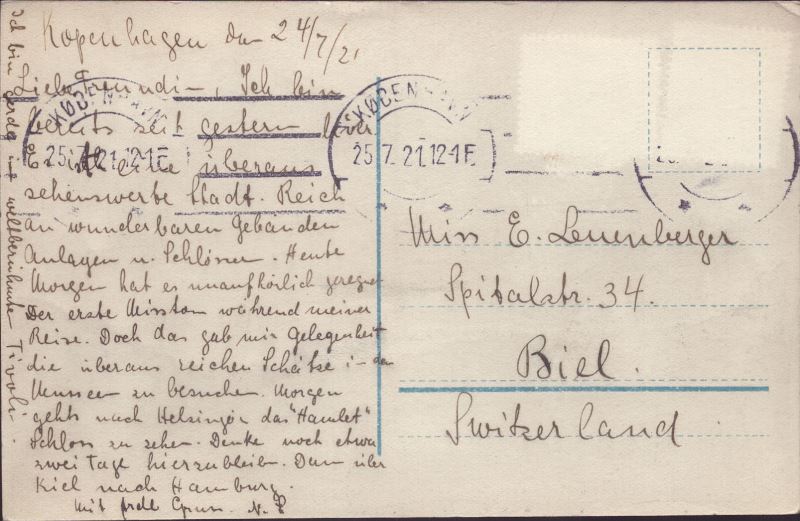 Kopenhagen den 24/7/21
Liebe Freundin, Ich bin
bereits seit gestern hier
Es ist eine überaus
sehenswerte Stadt. Reich
an wunderbaren Gebäuden
Anlagen u. Schlösser. Heute
Morgen hat es unaufhörlich geregnet
Der erste Misston während meiner
Reise. Doch das gab mir Gelegenheit
die überaus reichen Schätze in den
Museen zu besuchen. Morgen
gehts nach Helsingör das "Hamlet"
Schloss zu sehen. Denke noch etwa
zwei Tage hierzubleiben. Dann über
Kiel nach Hamburg.
Mit Gruss. N. L
Ich bin gerade im weltberühmten Tivoli.
KØBENHAVN
25.7.21.12-1E
KØBENHAVN
25.7.21.12-1E
Miss E. Leuenberger
Spitalstr. 34.
Biel.
Switzerland